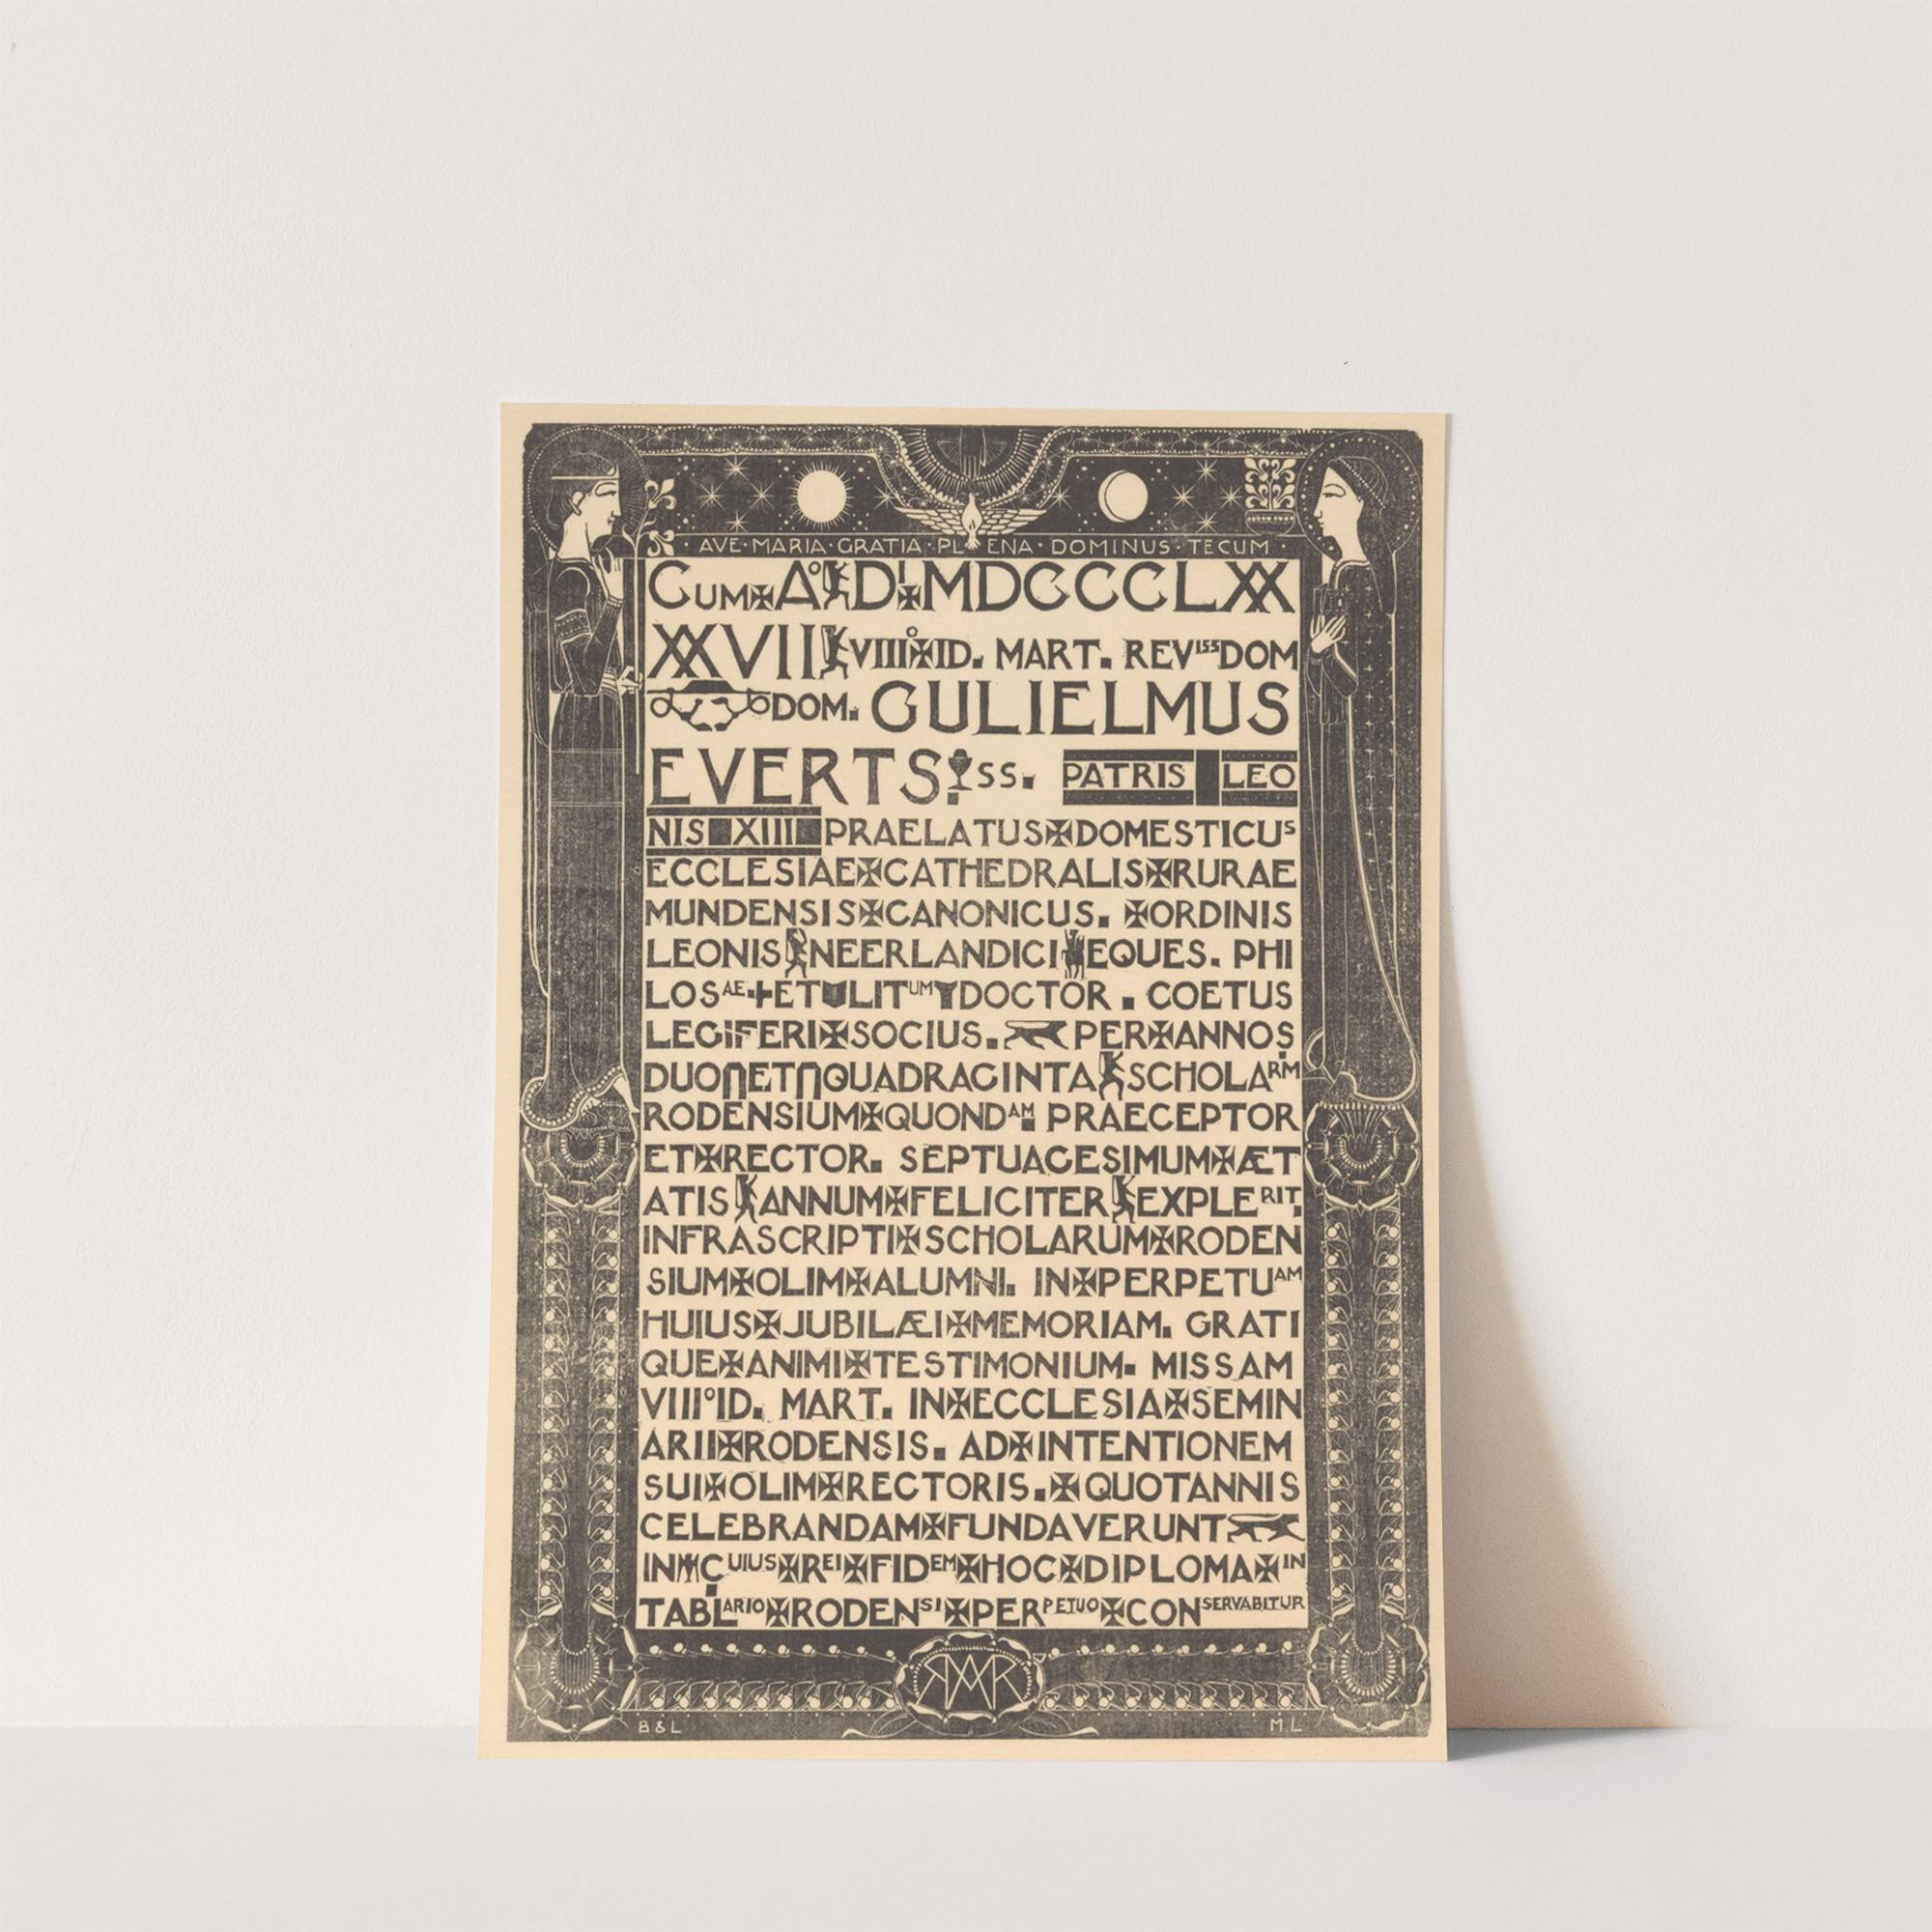 AVE · MARIA · GRATIA · PLENA · DOMINUS · TECUM ·
CUM Aº DI MDCCCLXX
XXVII VIIIº ID. MART. REVISS DOM
DOM. GULIELMUS
EVERTS. SS. PATRIS LEO
NIS XIII PRAELATUS DOMESTICUS
ECCLESIAE CATHEDRALIS RURAE
MUNDENSIS CANONICUS. ORDINIS
LEONIS NEERLANDICI EQUES. PHI
LOSAE ET LITUM DOCTOR. COETUS
LEGIFERI SOCIUS. PER ANNOS
DUO ET QUADRAGINTA SCHOLARM
RODENSIUM QUONDAM PRAECEPTOR
ET RECTOR. SEPTUAGESIMUM ÆT
ATIS ANNUM FELICITER EXPLERIT.
INFRASCRIPTI SCHOLARUM RODEN
SIUM OLIM ALUMNI. IN PERPETUAM
HUIUS JUBILÆI MEMORIAM. GRATI
QUE ANIMI TESTIMONIUM. MISSAM
VIIIº ID. MART. IN ECCLESIA SEMIN
ARII RODENSIS. AD INTENTIONEM
SUI OLIM RECTORIS. QUOTANNIS
CELEBRANDAM FUNDAVERUNT
IN CUIUS REI FIDEM HOC DIPLOMA IN
TABLARIO RODENSI PERPETUO CONSERVABITUR
B & L
M L